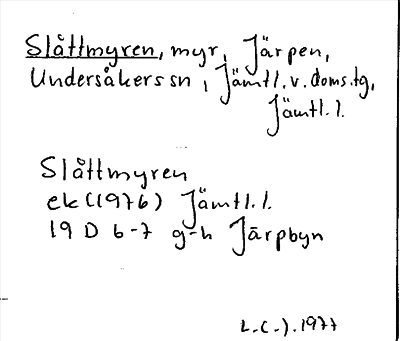 Slåttmyren, myr, Järpen,
Undersåkers sn, Jämtl. v. doms.tg,
Jämtl. l.
Slåttmyren
ek (1976) Jämtl. l.
19 D 6-7 g-h Järpbyn
L.C-J. 1977